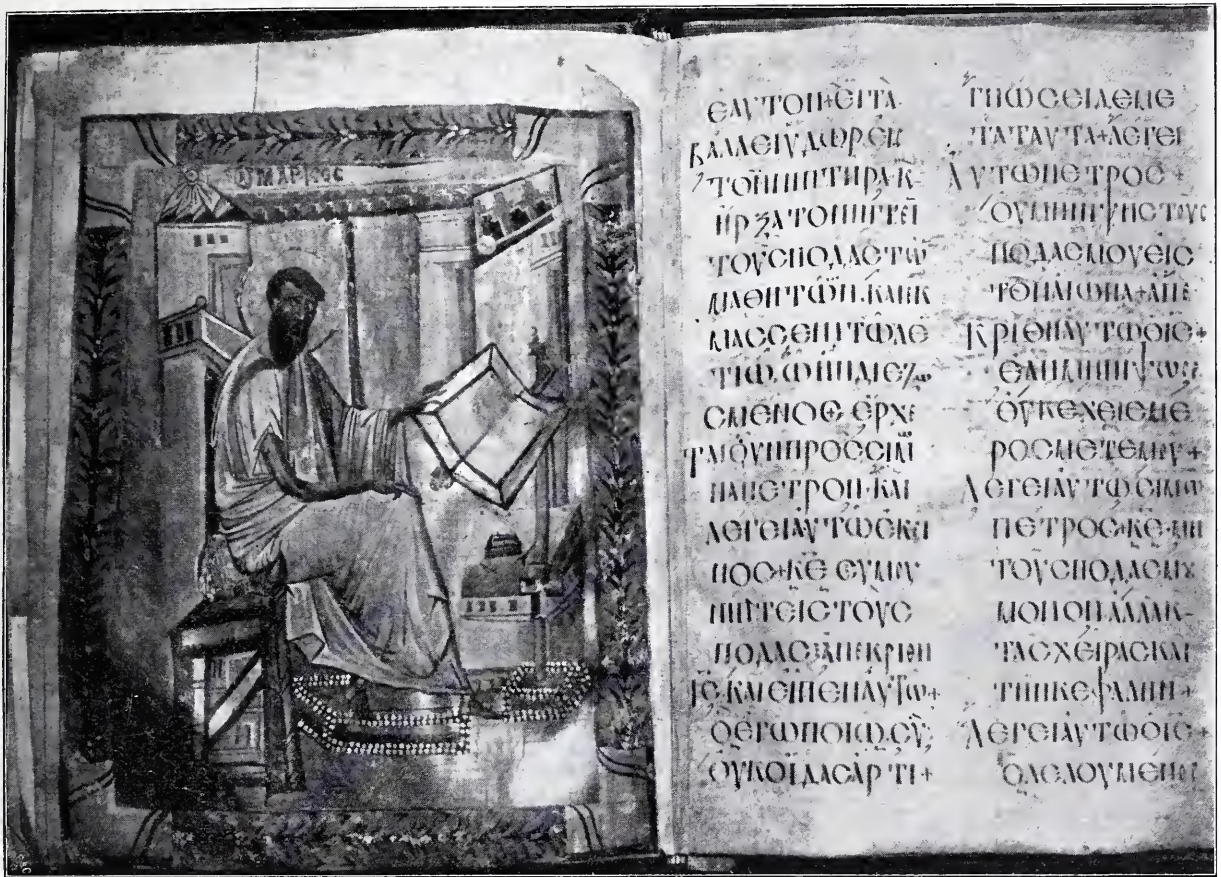 Ο ΜΑΡΚΟC
ΕΑΥΤΟΝ+ΕΙΤΑ
ΒΑΛΛΕΙΥΔΩΡΕΙC
ΤΟΝΝΙΠΤΗΡΑ Κ
ΗΡΞΑΤΟΝΙΠΤΕΙ̅
ΤΟΥCΠΟΔΑCΤΩ̅
ΜΑΘΗΤΩΝ.ΚΑΙΕΚ
ΜΑCCΕΙΝΤΩΛΕ
ΤΙΩ.ΩΗΝΔΙΕΖΩ
CΜΕΝΟC+ΕΡΧΕ
ΤΑΙΟΥΝΠΡΟCCΙΜ
ΝΑΠΕΤΡΟΝ.ΚΑΙ
ΛΕΓΕΙΑΥΤΩΕΚΕΙ
ΝΟC+Κ̅Ε̅ CΥΜΟΥ
ΝΙΠΤΕΙCΤΟΥC
ΠΟΔΑC+ΑΠΕΚΡΙΘΗ
Ι̅C̅ ΚΑΙΕΙΠΕΝΑΥΤΩ+
ΟΕΓΩΠΟΙΩ.CΥ
ΟΥΚΟΙΔΑCΑΡΤΙ+
ΓΝΩCΕΙΔΕΜΕ
ΤΑΤΑΥΤΑ+ΛΕΓΕΙ
ΑΥΤΩΠΕΤΡΟC+
ΟΥΜΗΝΙΨΗCΤΟΥC
ΠΟΔΑCΜΟΥΕΙC
ΤΟΝΑΙΩΝΑ+ΑΠΕ
ΚΡΙΘΗΑΥΤΩΟΙ̅C̅+
ΕΑΝΜΗΝΙΨΩCΕ
ΟΥΚΕΧΕΙCΜΕ
ΡΟCΜΕΤΕΜΟΥ+
ΛΕΓΕΙΑΥΤΩCΙΜΩ
ΠΕΤΡΟC+Κ̅Ε̅ ΜΗ
ΤΟΥCΠΟΔΑCΜΟΥ
ΜΟΝΟΝΑΛΛΑΚ
ΤΑCΧΕΙΡΑCΚΑΙ
ΤΗΝΚΕΦΑΛΗΝ+
ΛΕΓΕΙΑΥΤΩΟΙ̅C̅+
ΟΛΕΛΟΥΜΕΝΟC